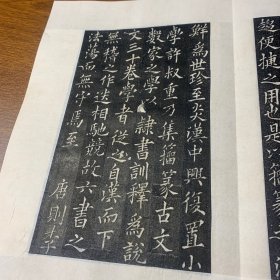 趨便捷之用也是
鮮為世珍至炎漢中興復置小
學許叔重乃集籀篆古文
數家之學以隸書訓釋為說
文三十卷學者從之自漢而下
無特作迭相馳競故六書之
法蕩而無守焉至唐則李